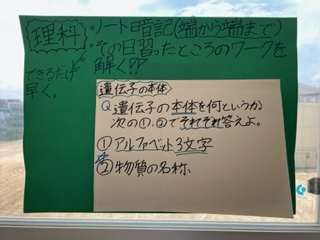 理科
・ノート暗記(端から端まで)
・その日習ったところのワークを
解く!!
できるだけ
早く。
遺伝子の本体
Q 遺伝子の本体を何というか
次の①、②でそれぞれ答えよ。
①アルファベット3文字
②物質の名称